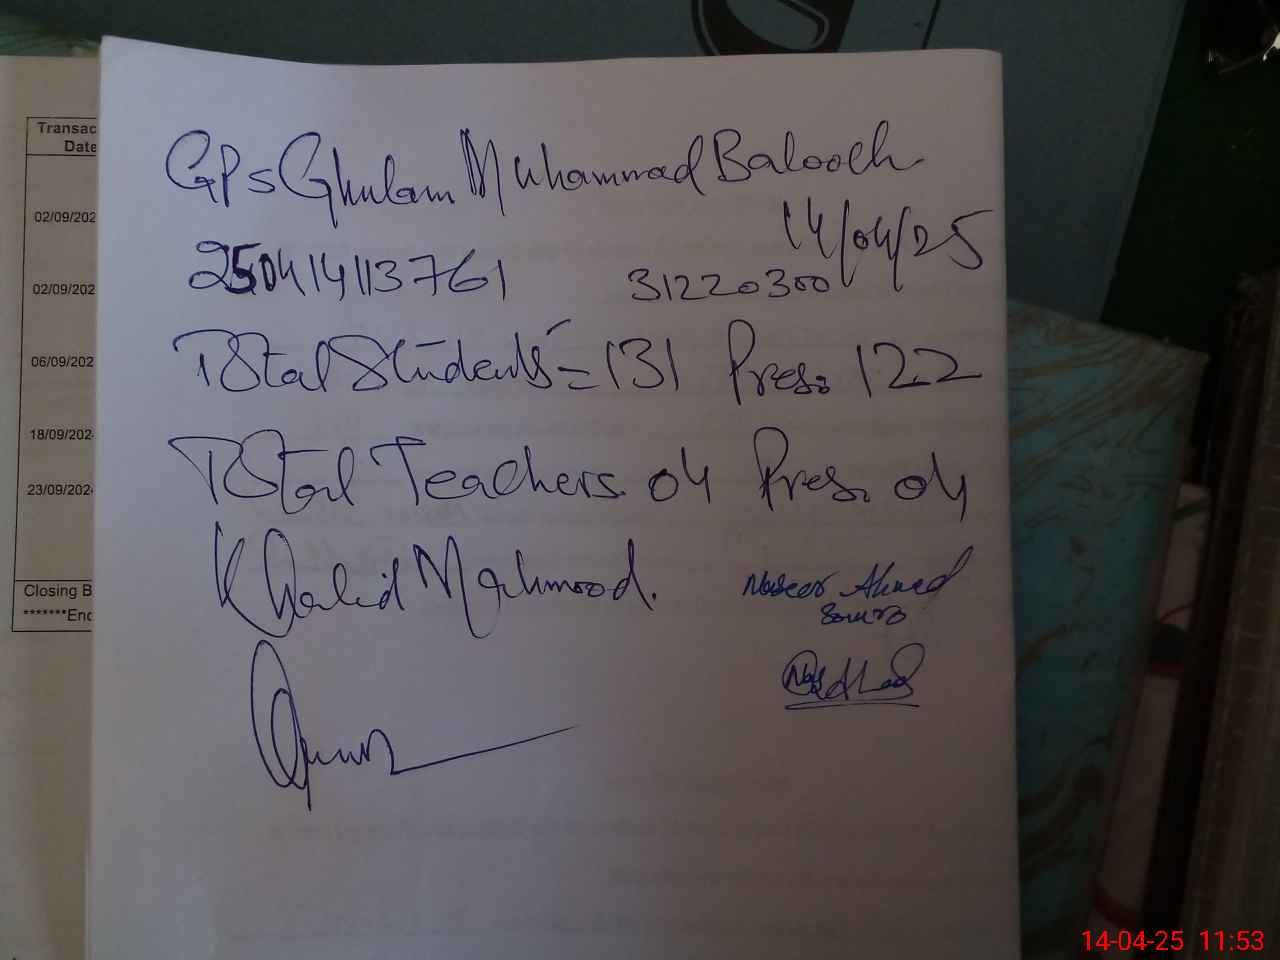 GPS Ghulam Muhammad Balooch
14/04/25
250414113761 31220300
Total Students = 131 Pres: 122
Total Teachers. 04 Pres. 04
Khalid Mahmood.
Naseer Ahmed
Soomro
Transac
Date
02/09/202
02/09/202
06/09/202
18/09/202
23/09/202
Closing B
*******End
14-04-25 11:53